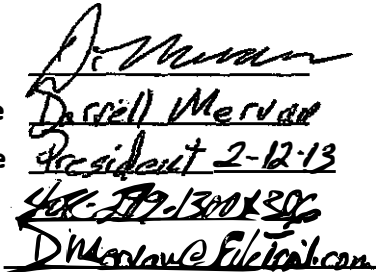 e Darrell Mervau
e President 2-12-13
408-279-1300x306
DMervau@FileTrail.com